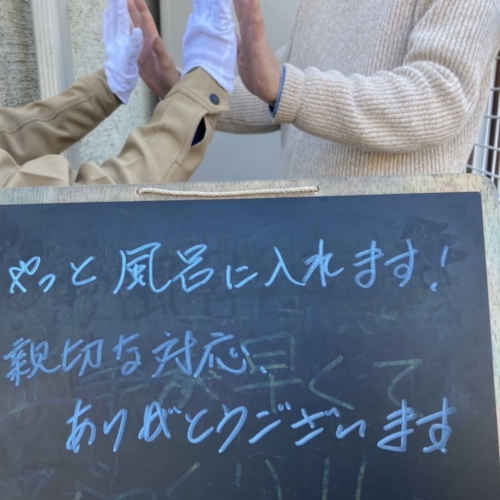 やっと風呂に入れます!
親切な対応、
ありがとうございます